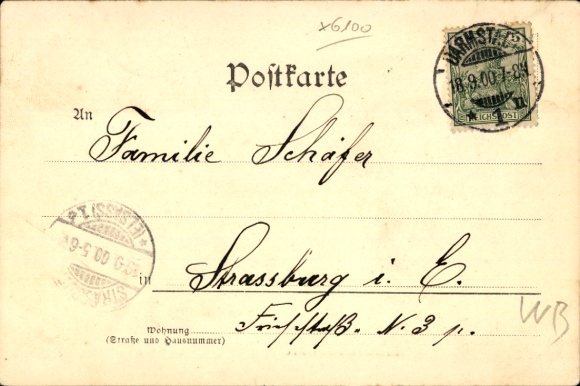 x6100
Postkarte
DARMSTADT
18.9.00.7-8
* 1 n
REICHSPOST
An
Familie Schäfer
STRASS
9.00.5-6
(ELSASS) 1.
in Strassburg i. E.
Wohnung
(Straße und Hausnummer)
N. 3 p.
WB